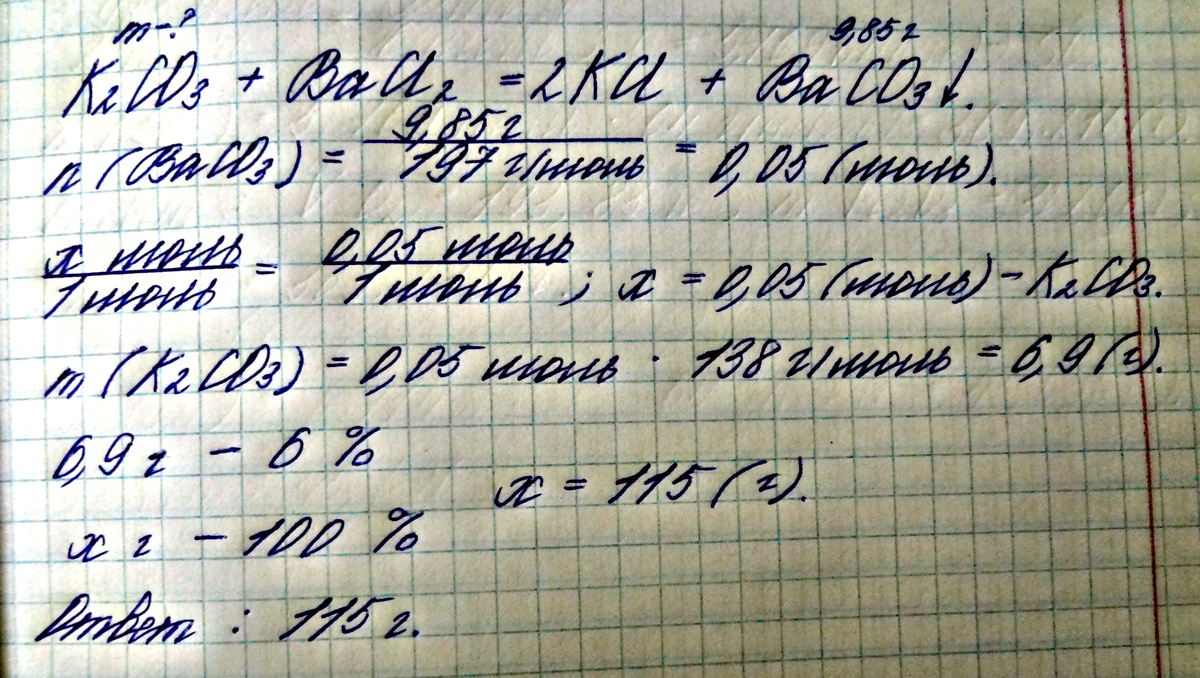 m-? 9,85 г
K2CO3 + BaCl2 = 2KCl + BaCO3↓.
n (BaCO3) = 9,85 г / 197 г/моль = 0,05 (моль).
x моль / 1 моль = 0,05 моль / 1 моль ; x = 0,05 (моль) - K2CO3.
m (K2CO3) = 0,05 моль · 138 г/моль = 6,9 (г).
6,9 г - 6 %
x = 115 (г).
x г - 100 %
Ответ : 115 г.